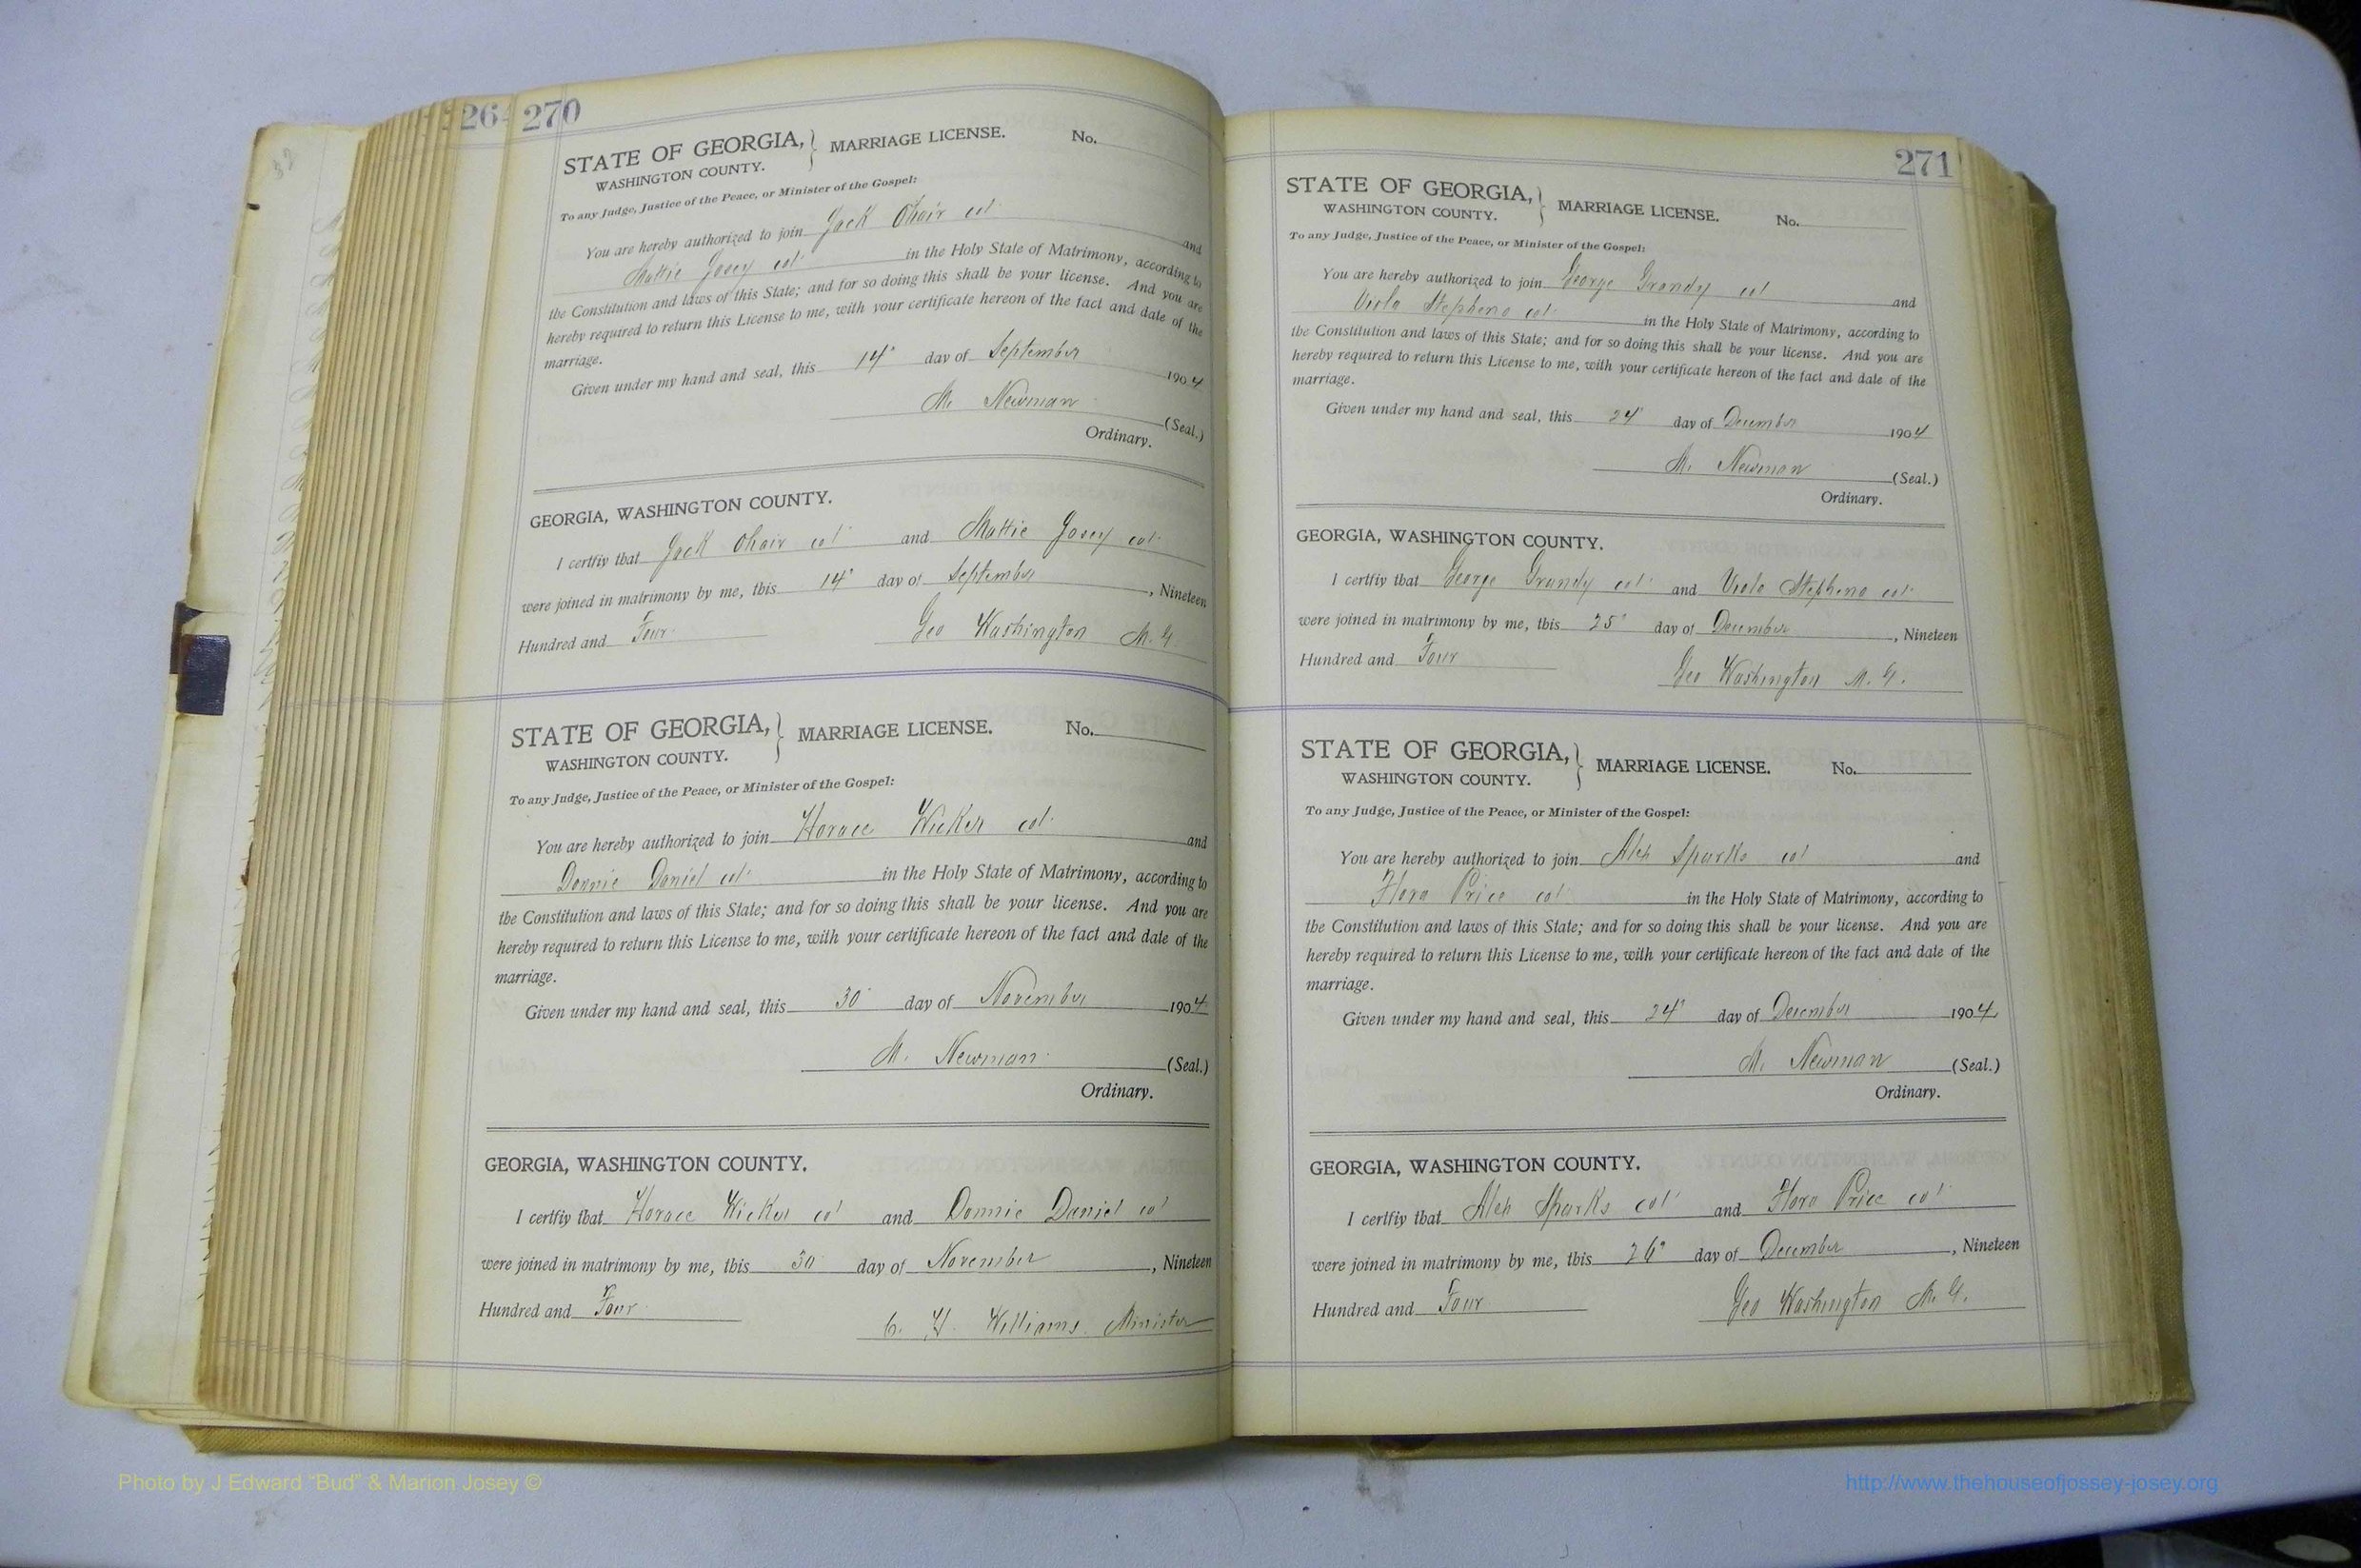 264 270
STATE OF GEORGIA, } MARRIAGE LICENSE. No.
WASHINGTON COUNTY.
To any Judge, Justice of the Peace, or Minister of the Gospel:
You are hereby authorized to join Jack Ohair col and
Mattie Josey col in the Holy State of Matrimony, according to
the Constitution and laws of this State; and for so doing this shall be your license. And you are
hereby required to return this License to me, with your certificate hereon of the fact and date of the
marriage.
Given under my hand and seal, this 14" day of September 1904
M. Newman (Seal.)
Ordinary.
GEORGIA, WASHINGTON COUNTY.
I certfiy that Jack Ohair col and Mattie Josey col
were joined in matrimony by me, this 14" day of September, Nineteen
Hundred and Four Geo Washington M. G.
STATE OF GEORGIA, } MARRIAGE LICENSE. No.
WASHINGTON COUNTY.
To any Judge, Justice of the Peace, or Minister of the Gospel:
You are hereby authorized to join Horace Wicker col and
Donnie Daniel col in the Holy State of Matrimony, according to
the Constitution and laws of this State; and for so doing this shall be your license. And you are
hereby required to return this License to me, with your certificate hereon of the fact and date of the
marriage.
Given under my hand and seal, this 30 day of November 1904
M. Newman (Seal.)
Ordinary.
GEORGIA, WASHINGTON COUNTY.
I certfiy that Horace Wicker col and Donnie Daniel col
were joined in matrimony by me, this 30 day of November, Nineteen
Hundred and Four
Williams Minister
271
STATE OF GEORGIA, } MARRIAGE LICENSE. No.
WASHINGTON COUNTY.
To any Judge, Justice of the Peace, or Minister of the Gospel:
You are hereby authorized to join George Grandy col and
Viola Stephens col in the Holy State of Matrimony, according to
the Constitution and laws of this State; and for so doing this shall be your license. And you are
hereby required to return this License to me, with your certificate hereon of the fact and date of the
marriage.
Given under my hand and seal, this 24" day of December 1904
M. Newman (Seal.)
Ordinary.
GEORGIA, WASHINGTON COUNTY.
I certfiy that George Grandy col and Viola Stephens col
were joined in matrimony by me, this 25" day of December, Nineteen
Hundred and Four
Geo Washington M. G.
STATE OF GEORGIA, } MARRIAGE LICENSE. No.
WASHINGTON COUNTY.
To any Judge, Justice of the Peace, or Minister of the Gospel:
You are hereby authorized to join Alex Sparks col and
Flora Price col in the Holy State of Matrimony, according to
the Constitution and laws of this State; and for so doing this shall be your license. And you are
hereby required to return this License to me, with your certificate hereon of the fact and date of the
marriage.
Given under my hand and seal, this 24" day of December 1904
M. Newman (Seal.)
Ordinary.
GEORGIA, WASHINGTON COUNTY.
I certfiy that Alex Sparks col and Flora Price col
were joined in matrimony by me, this 26" day of December, Nineteen
Hundred and Four
Geo Washington M. G.
Photo by J Edward “Bud” & Marion Josey ©
http://www.thehouseofjossey-josey.org